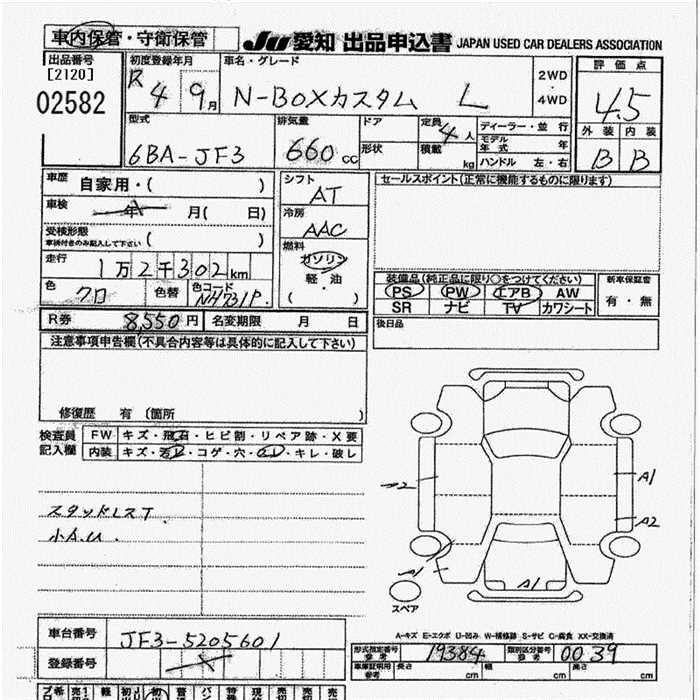 車内保管・守衛保管
JU 愛知 出品申込書 JAPAN USED CAR DEALERS ASSOCIATION
出品番号
[2120]
02582
初度登録年月
R 4 9月
車名・グレード
N-BOXカスタム L
2WD
・
4WD
評価点
4.5
外装 内装
B B
型式
6BA-JF3
排気量
660cc
ドア
形状
定員 4人
積載 kg
ディーラー・並行
モデル年式 年
ハンドル 左・右
車歴 自家用・( )
車検 年 月( 日)
受検形態
車検付きのみ記入して下さい ( )
走行 1万2千302km
色 クロ 色替 色コード NH731P
シフト
AT
冷房
AAC
燃料
ガソリン
軽・油
( ・ )
セールスポイント(正常に機能するものに限ります)
装備品(純正品に限り○をつけてください)
PS PW エアB AW
SR ナビ TV カワシート
新車保証書
有・無
後日品
R券 8,550円 名変期限 月 日
注意事項申告欄(不具合内容等は具体的に記入して下さい)
修復歴 有 (箇所 )
検査員記入欄
FW キズ・飛石・ヒビ割・リペア跡・X要
内装 キズ・汚レ・コゲ・穴・凹ミ・キレ・破レ
スタッドレスT.
小A.U.
A1
A2
A1
A1
スペア
A-キズ E-エクボ U-凹み W-補修跡 S-サビ C-腐食 XX-交換済
車台番号 JF3-5205601
登録番号
型式指定番号 参考 19384 類別区分番号 参考 0039
車庫証明用 参考 長さ cm 幅 cm 高さ cm